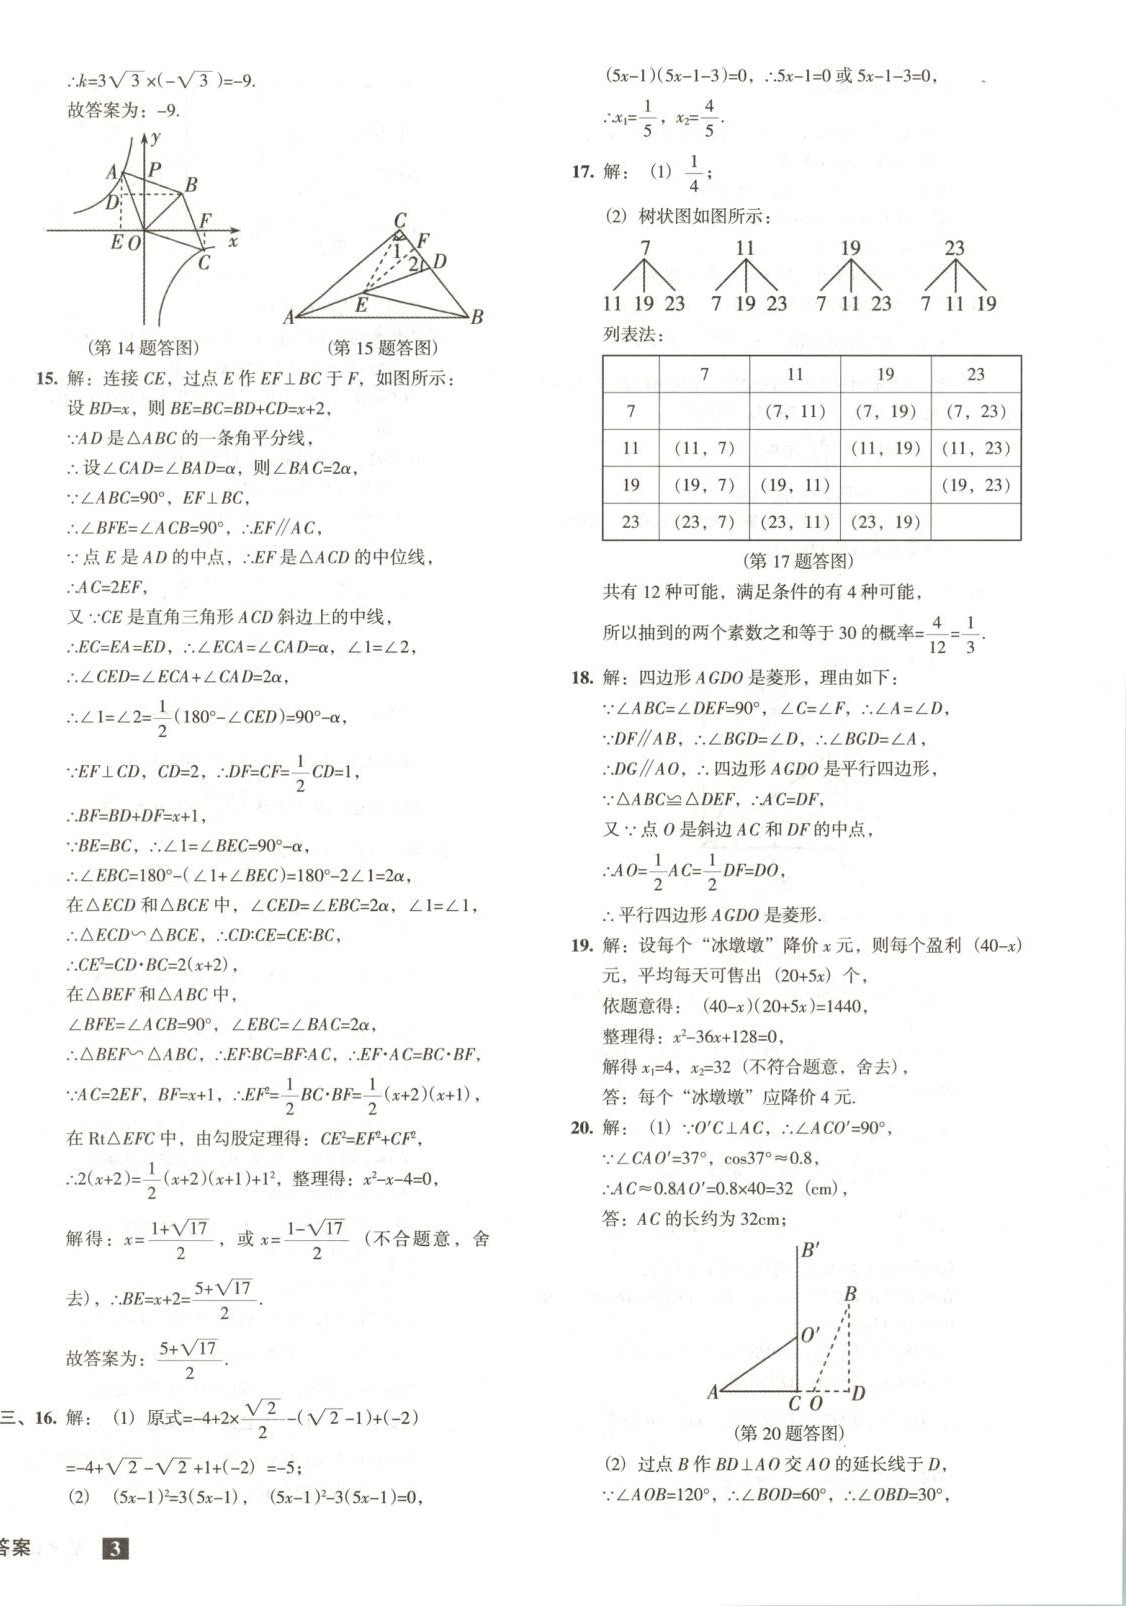 ∴k=3√3×(-√3)=-9.
故答案为：-9.
y
A
P
B
D
F
E O
x
C
C
F
1
2
D
E
A
B
(第 14 题答图)
(第 15 题答图)
15. 解：连接 CE，过点 E 作 EF⊥BC 于 F，如图所示：
设 BD=x，则 BE=BC=BD+CD=x+2，
∵AD 是△ABC 的一条角平分线，
∴设∠CAD=∠BAD=α，则∠BAC=2α，
∵∠ABC=90°，EF⊥BC，
∴∠BFE=∠ACB=90°，∴EF∥AC，
∵点 E 是 AD 的中点，∴EF 是△ACD 的中位线，
∴AC=2EF，
又∵CE 是直角三角形 ACD 斜边上的中线，
∴EC=EA=ED，∴∠ECA=∠CAD=α，∠1=∠2，
∴∠CED=∠ECA+∠CAD=2α，
∴∠1=∠2=1/2(180°-∠CED)=90°-α，
∵EF⊥CD，CD=2，∴DF=CF=1/2CD=1，
∴BF=BD+DF=x+1，
∵BE=BC，∴∠1=∠BEC=90°-α，
∴∠EBC=180°-(∠1+∠BEC)=180°-2∠1=2α，
在△ECD 和△BCE 中，∠CED=∠EBC=2α，∠1=∠1，
∴△ECD∽△BCE，∴CD∶CE=CE∶BC，
∴CE²=CD·BC=2(x+2)，
在△BEF 和△ABC 中，
∠BFE=∠ACB=90°，∠EBC=∠BAC=2α，
∴△BEF∽△ABC，∴EF∶BC=BF∶AC，∴EF·AC=BC·BF，
∵AC=2EF，BF=x+1，∴EF²=1/2BC·BF=1/2(x+2)(x+1)，
在 Rt△EFC 中，由勾股定理得：CE²=EF²+CF²，
∴2(x+2)=1/2(x+2)(x+1)+1²，整理得：x²-x-4=0，
解得：x=(1+√17)/2，或 x=(1-√17)/2（不合题意，舍
去），∴BE=x+2=(5+√17)/2.
故答案为：(5+√17)/2.
三、16. 解：（1）原式=-4+2×√2/2-(√2-1)+(-2)
=-4+√2-√2+1+(-2) =-5；
（2）(5x-1)²=3(5x-1)，(5x-1)²-3(5x-1)=0，
答案
3
(5x-1)(5x-1-3)=0，∴5x-1=0 或 5x-1-3=0，
∴x₁=1/5，x₂=4/5.
17. 解：（1）1/4；
（2）树状图如图所示：
7 11 19 23
11 19 23 7 19 23 7 11 23 7 11 19
列表法：
7 11 19 23
7 (7，11) (7，19) (7，23)
11 (11，7) (11，19) (11，23)
19 (19，7) (19，11) (19，23)
23 (23，7) (23，11) (23，19)
(第 17 题答图)
共有 12 种可能，满足条件的有 4 种可能，
所以抽到的两个素数之和等于 30 的概率=4/12=1/3.
18. 解：四边形 AGDO 是菱形，理由如下：
∵∠ABC=∠DEF=90°，∠C=∠F，∴∠A=∠D，
∵DF∥AB，∴∠BGD=∠D，∴∠BGD=∠A，
∴DG∥AO，∴四边形 AGDO 是平行四边形，
∵△ABC≌△DEF，∴AC=DF，
又∵点 O 是斜边 AC 和 DF 的中点，
∴AO=1/2AC=1/2DF=DO，
∴平行四边形 AGDO 是菱形.
19. 解：设每个“冰墩墩”降价 x 元，则每个盈利（40-x）
元，平均每天可售出（20+5x）个，
依题意得：(40-x)(20+5x)=1440，
整理得：x²-36x+128=0，
解得 x₁=4，x₂=32（不符合题意，舍去），
答：每个“冰墩墩”应降价 4 元.
20. 解：（1）∵O′C⊥AC，∴∠ACO′=90°，
∵∠CAO′=37°，cos37°≈0.8，
∴AC≈0.8AO′=0.8×40=32（cm），
答：AC 的长约为 32cm；
B′
B
O′
A
C O
D
(第 20 题答图)
（2）过点 B 作 BD⊥AO 交 AO 的延长线于 D，
∵∠AOB=120°，∴∠BOD=60°，∴∠OBD=30°，